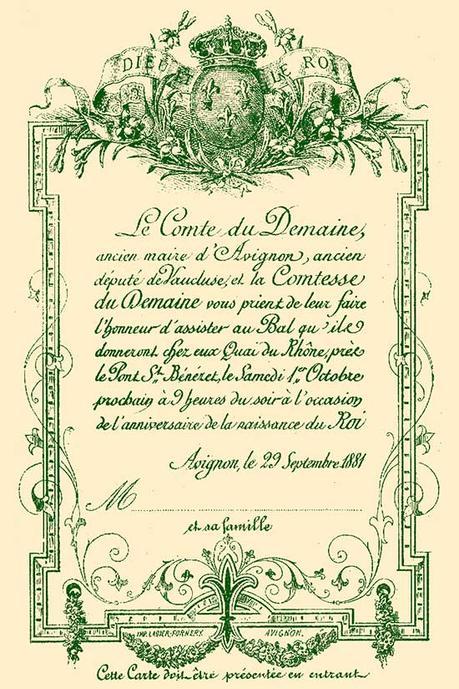 DIEU LE ROI
Le Comte du Demaine,
ancien maire d'Avignon, ancien
député de Vaucluse, et la Comtesse
du Demaine vous prient de leur faire
l'honneur d'assister au Bal qu'ils
donneront chez eux Quai du Rhône, près
le Pont St. Bénéret, le Samedi 1er Octobre
prochain à 9 heures du soir à l'occasion
de l'anniversaire de la naissance du Roi
Avignon, le 29 Septembre 1881
M
et sa famille
IMP. LASIER-FORNERY. AVIGNON.
Cette Carte doit être présentée en entrant